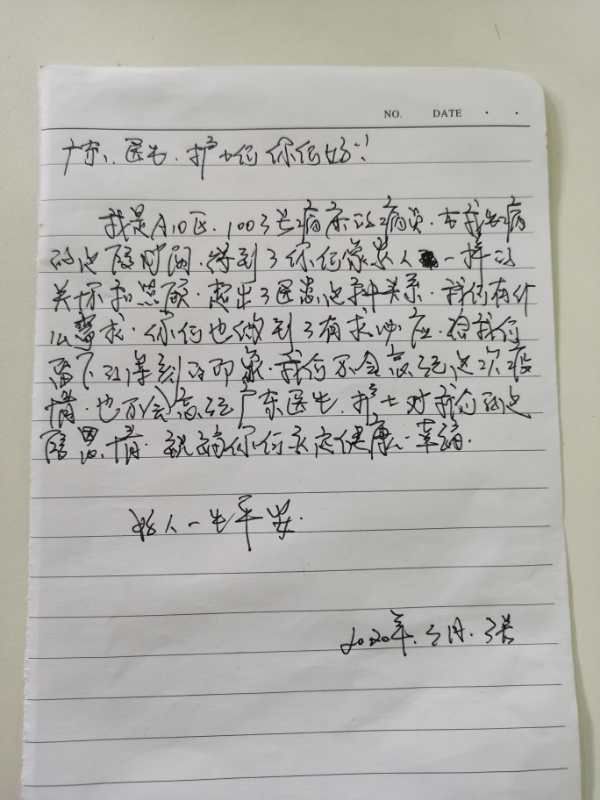 NO. DATE
广东、医生、护士们你们好!
我是A10区、1003号病床的病员、在我出病
的这段时间、得到了你们像亲人一样的
关怀和照顾、超出了医患这种关系、我们有什
么需求、你们也做到了有求必应、给我们
留下了深刻的印象、我们不会忘记这次疫
情、也不会忘记广东医生、护士对我们的这
段恩情、祝福你们永远健康、幸福、
好人一生平安、
2020年、3月、张